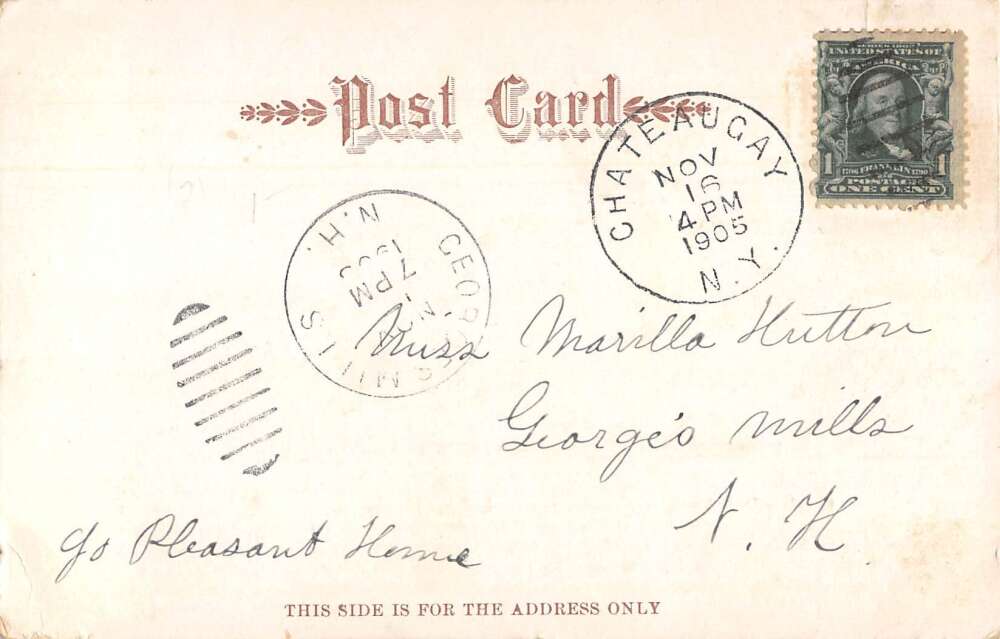 Post Card
SERIES 1902
UNITED STATES OF
AMERICA
1706 FRANKLIN 1790
1 POSTAGE 1
ONE CENT
CHATEAUGAY
NOV
16
4 PM
1905
N.Y.
GEORGES MILLS
N.H.
7 PM
Miss Marilla Hutton
George's Mills
N. H.
c/o Pleasant Home
THIS SIDE IS FOR THE ADDRESS ONLY